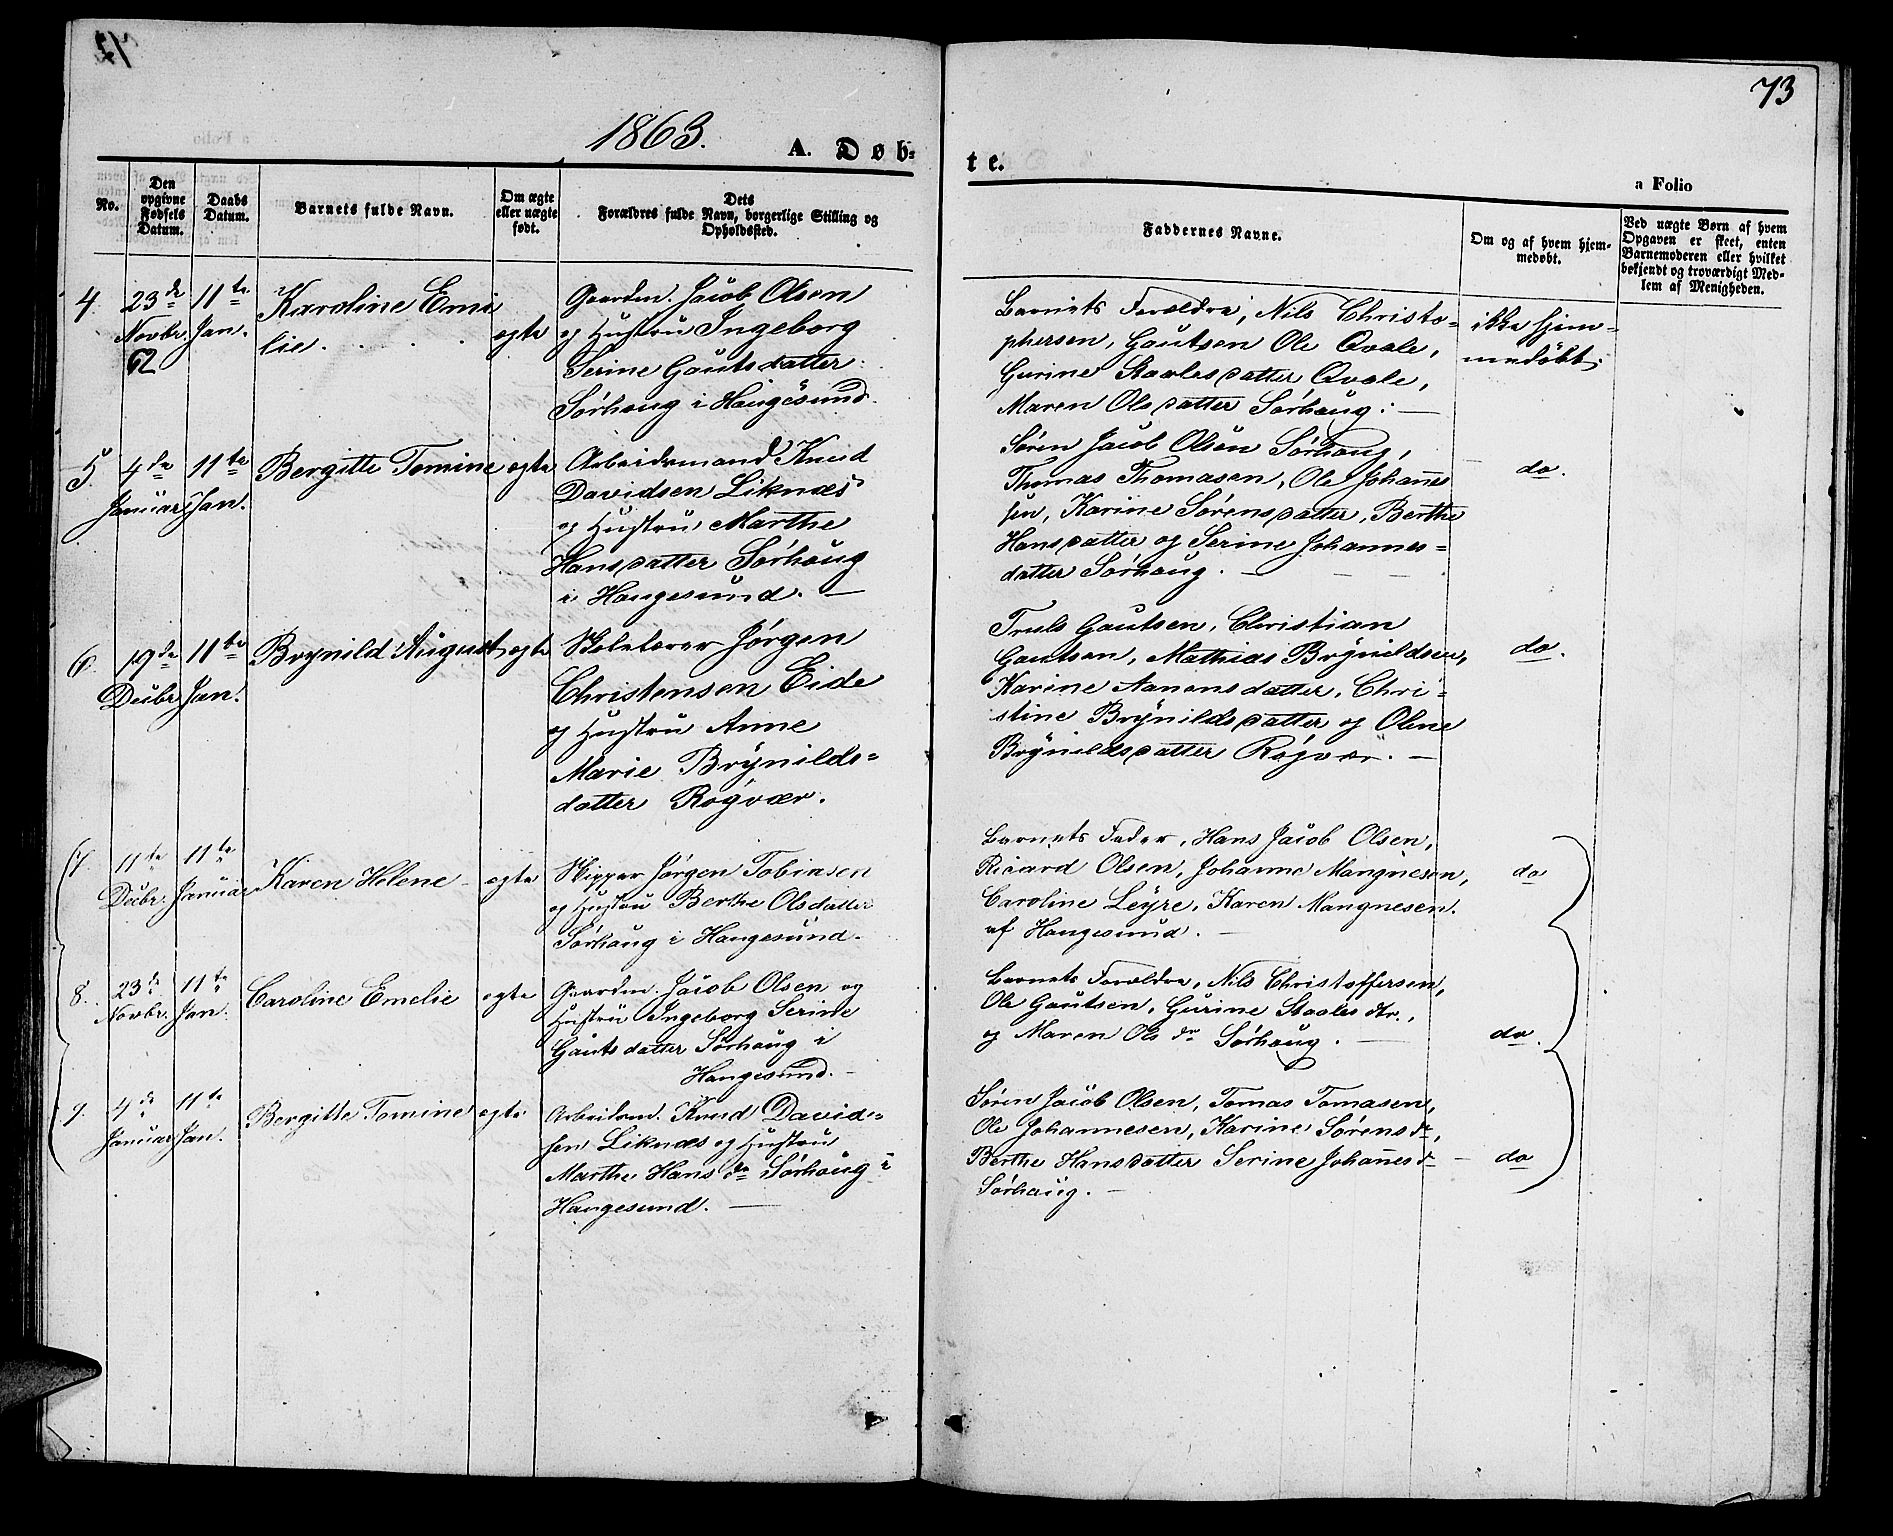 73
1863.
A. Døb-
te.
a Folio
No.
Den
opgivne
Fødsels
Datum.
Daabs
Datum.
Barnets fulde Navn.
Om ægte
eller uægte
født.
Dets
Forældres fulde Navn, borgerlige Stilling og
Opholdssted.
Faddernes Navne.
Om og af hvem hjem-
medøbt.
Ved uægte Børn af hvem
Opgaven er skeet, enten
Barnemoderen eller hvilket
bekjendt og troværdigt Med-
lem af Menigheden.
4. 23de
Novbr.
62
11te
Jan.
Karoline Emi
lie.
egte
Gaardm. Jacob Olsen
og Hustru Ingeborg
Serine Gautsdatter
Sørhaug i Haugesund.
Barnets Forældre, Nils Christo-
phersen, Gautsen Ole Qvale,
Gurine Staalesdatter Qvale,
Maren Olsdatter Sørhaug. —
ikke hjem-
medøbt.
5. 4de
Januar
11te
Jan.
Bergitte Tomine
egte
Arbeidsmand Knud
Davidsen Liknæs
og Hustru Marthe
Hansdatter Sørhaug
i Haugesund. —
Søren Jacob Olsen Sørhaug,
Thomas Thomasen, Ole Johannes
sen, Karine Sørensdatter, Berthe
Hansdatter og Serine Johannes-
datter Sørhaug. —
do.
6. 19de
Decbr.
11te
Jan.
Brynild August
egte
Christensen Eide
og Hustru Anne
Marie Brynilds-
datter Røgvær.
Truls Gautsen, Christian
Gautsen, Mathias Brynildsen,
Karine Aanensdatter, Chri-
stine Brynildsdatter og Oline
Brynildsdatter Røgvær. —
do.
7 11te
Decbr.
11te
Januar
Karen Helene
egte
Skipper Jørgen Tobiasen
og Hustru Berthe Olsdatter
Sørhaug i Haugesund.
Barnets Fader, Hans Jacob Olsen,
Ricard Olsen, Johanne Mangnesen,
Caroline Leyre, Karen Mangnesen.
af Haugesund. —
do
8. 23de
Novbr.
11te
Jan.
Caroline Emelie
egte
Gaardm. Jacob Olsen og
Hustru Ingeborg Serine
Gautsdatter Sørhaug i
Haugesund. —
Barnets Forældre, Nils Christoffersen,
Ole Gautsen, Gurine Staales dtr.,
og Maren Ols dr Sørhaug. —
do.
9. 4de
Januar
11te
Jan.
Bergitte Tomine
egte
Arbeidsm. Knud David-
sen Liknæs og Hustru
Marthe Hans da Sørhaug i
Haugesund. —
Søren Jacob Olsen, Tomas Tomasen,
Ole Johannesen, Karine Sørens dr,
Berthe Hansdatter Serine Johannes dr
Sørhaug. —
do